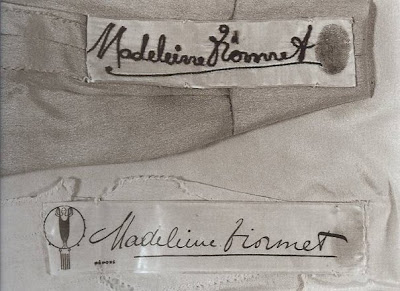 Madeleine Vionnet
Madeleine Vionnet